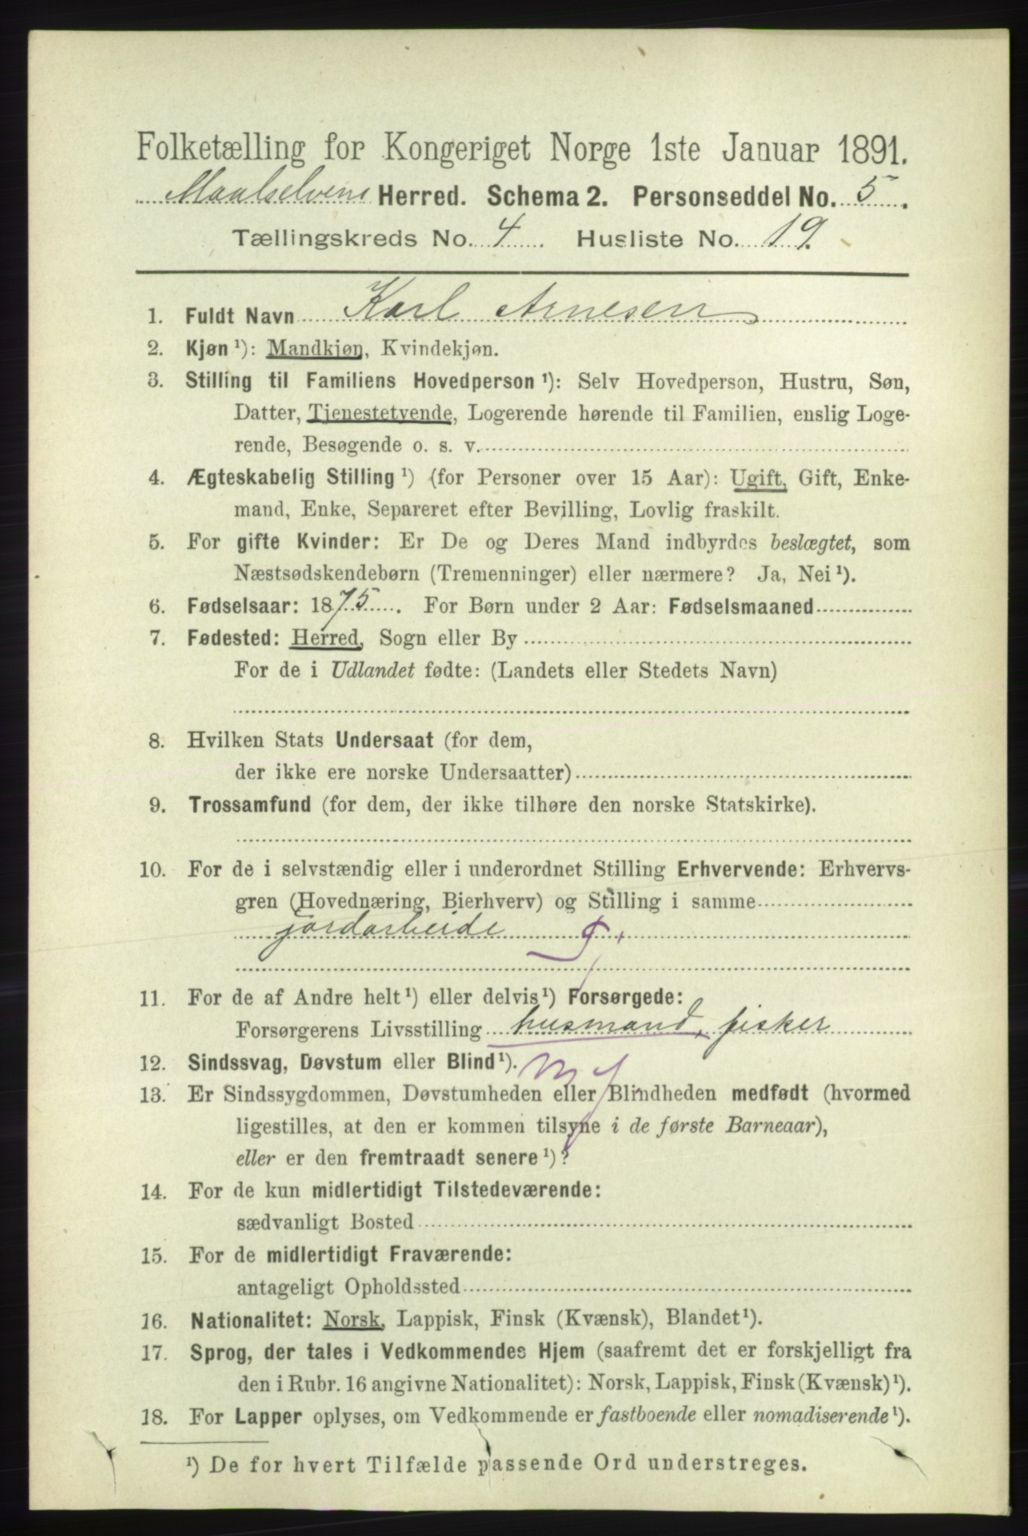 Folketælling for Kongeriget Norge 1ste Januar 1891.
Maalselvens Herred. Schema 2. Personseddel No. 5.
Tællingskreds No. 4. Husliste No. 19.
1. Fuldt Navn Karl Arnesen
2. Kjøn ¹): Mandkjøn, Kvindekjøn.
3. Stilling til Familiens Hovedperson ¹): Selv Hovedperson, Hustru, Søn,
Datter, Tjenestetyende, Logerende hørende til Familien, enslig Loge-
rende, Besøgende o. s. v.
4. Ægteskabelig Stilling ¹) (for Personer over 15 Aar): Ugift, Gift, Enke-
mand, Enke, Separeret efter Bevilling, Lovlig fraskilt.
5. For gifte Kvinder: Er De og Deres Mand indbyrdes beslægtet, som
Næstsødskendebørn (Tremenninger) eller nærmere? Ja, Nei ¹).
6. Fødselsaar: 1875. For Børn under 2 Aar: Fødselsmaaned
7. Fødested: Herred, Sogn eller By
For de i Udlandet fødte: (Landets eller Stedets Navn)
8. Hvilken Stats Undersaat (for dem,
der ikke ere norske Undersaatter)
9. Trossamfund (for dem, der ikke tilhøre den norske Statskirke).
10. For de i selvstændig eller i underordnet Stilling Erhvervende: Erhvervs-
gren (Hovednæring, Bierhverv) og Stilling i samme
jordarbeide
11. For de af Andre helt ¹) eller delvis ¹) Forsørgede:
Forsørgerens Livsstilling husmand, fisker
12. Sindssvag, Døvstum eller Blind ¹).
13. Er Sindssygdommen, Døvstumheden eller Blindheden medfødt (hvormed
ligestilles, at den er kommen tilsyne i de første Barneaar),
eller er den fremtraadt senere ¹)?
14. For de kun midlertidigt Tilstedeværende:
sædvanligt Bosted
15. For de midlertidigt Fraværende:
antageligt Opholdssted
16. Nationalitet: Norsk, Lappisk, Finsk (Kvænsk), Blandet ¹).
17. Sprog, der tales i Vedkommendes Hjem (saafremt det er forskjelligt fra
den i Rubr. 16 angivne Nationalitet): Norsk, Lappisk, Finsk (Kvænsk) ¹).
18. For Lapper oplyses, om Vedkommende er fastboende eller nomadiserende ¹).
¹) De for hvert Tilfælde passende Ord understreges.